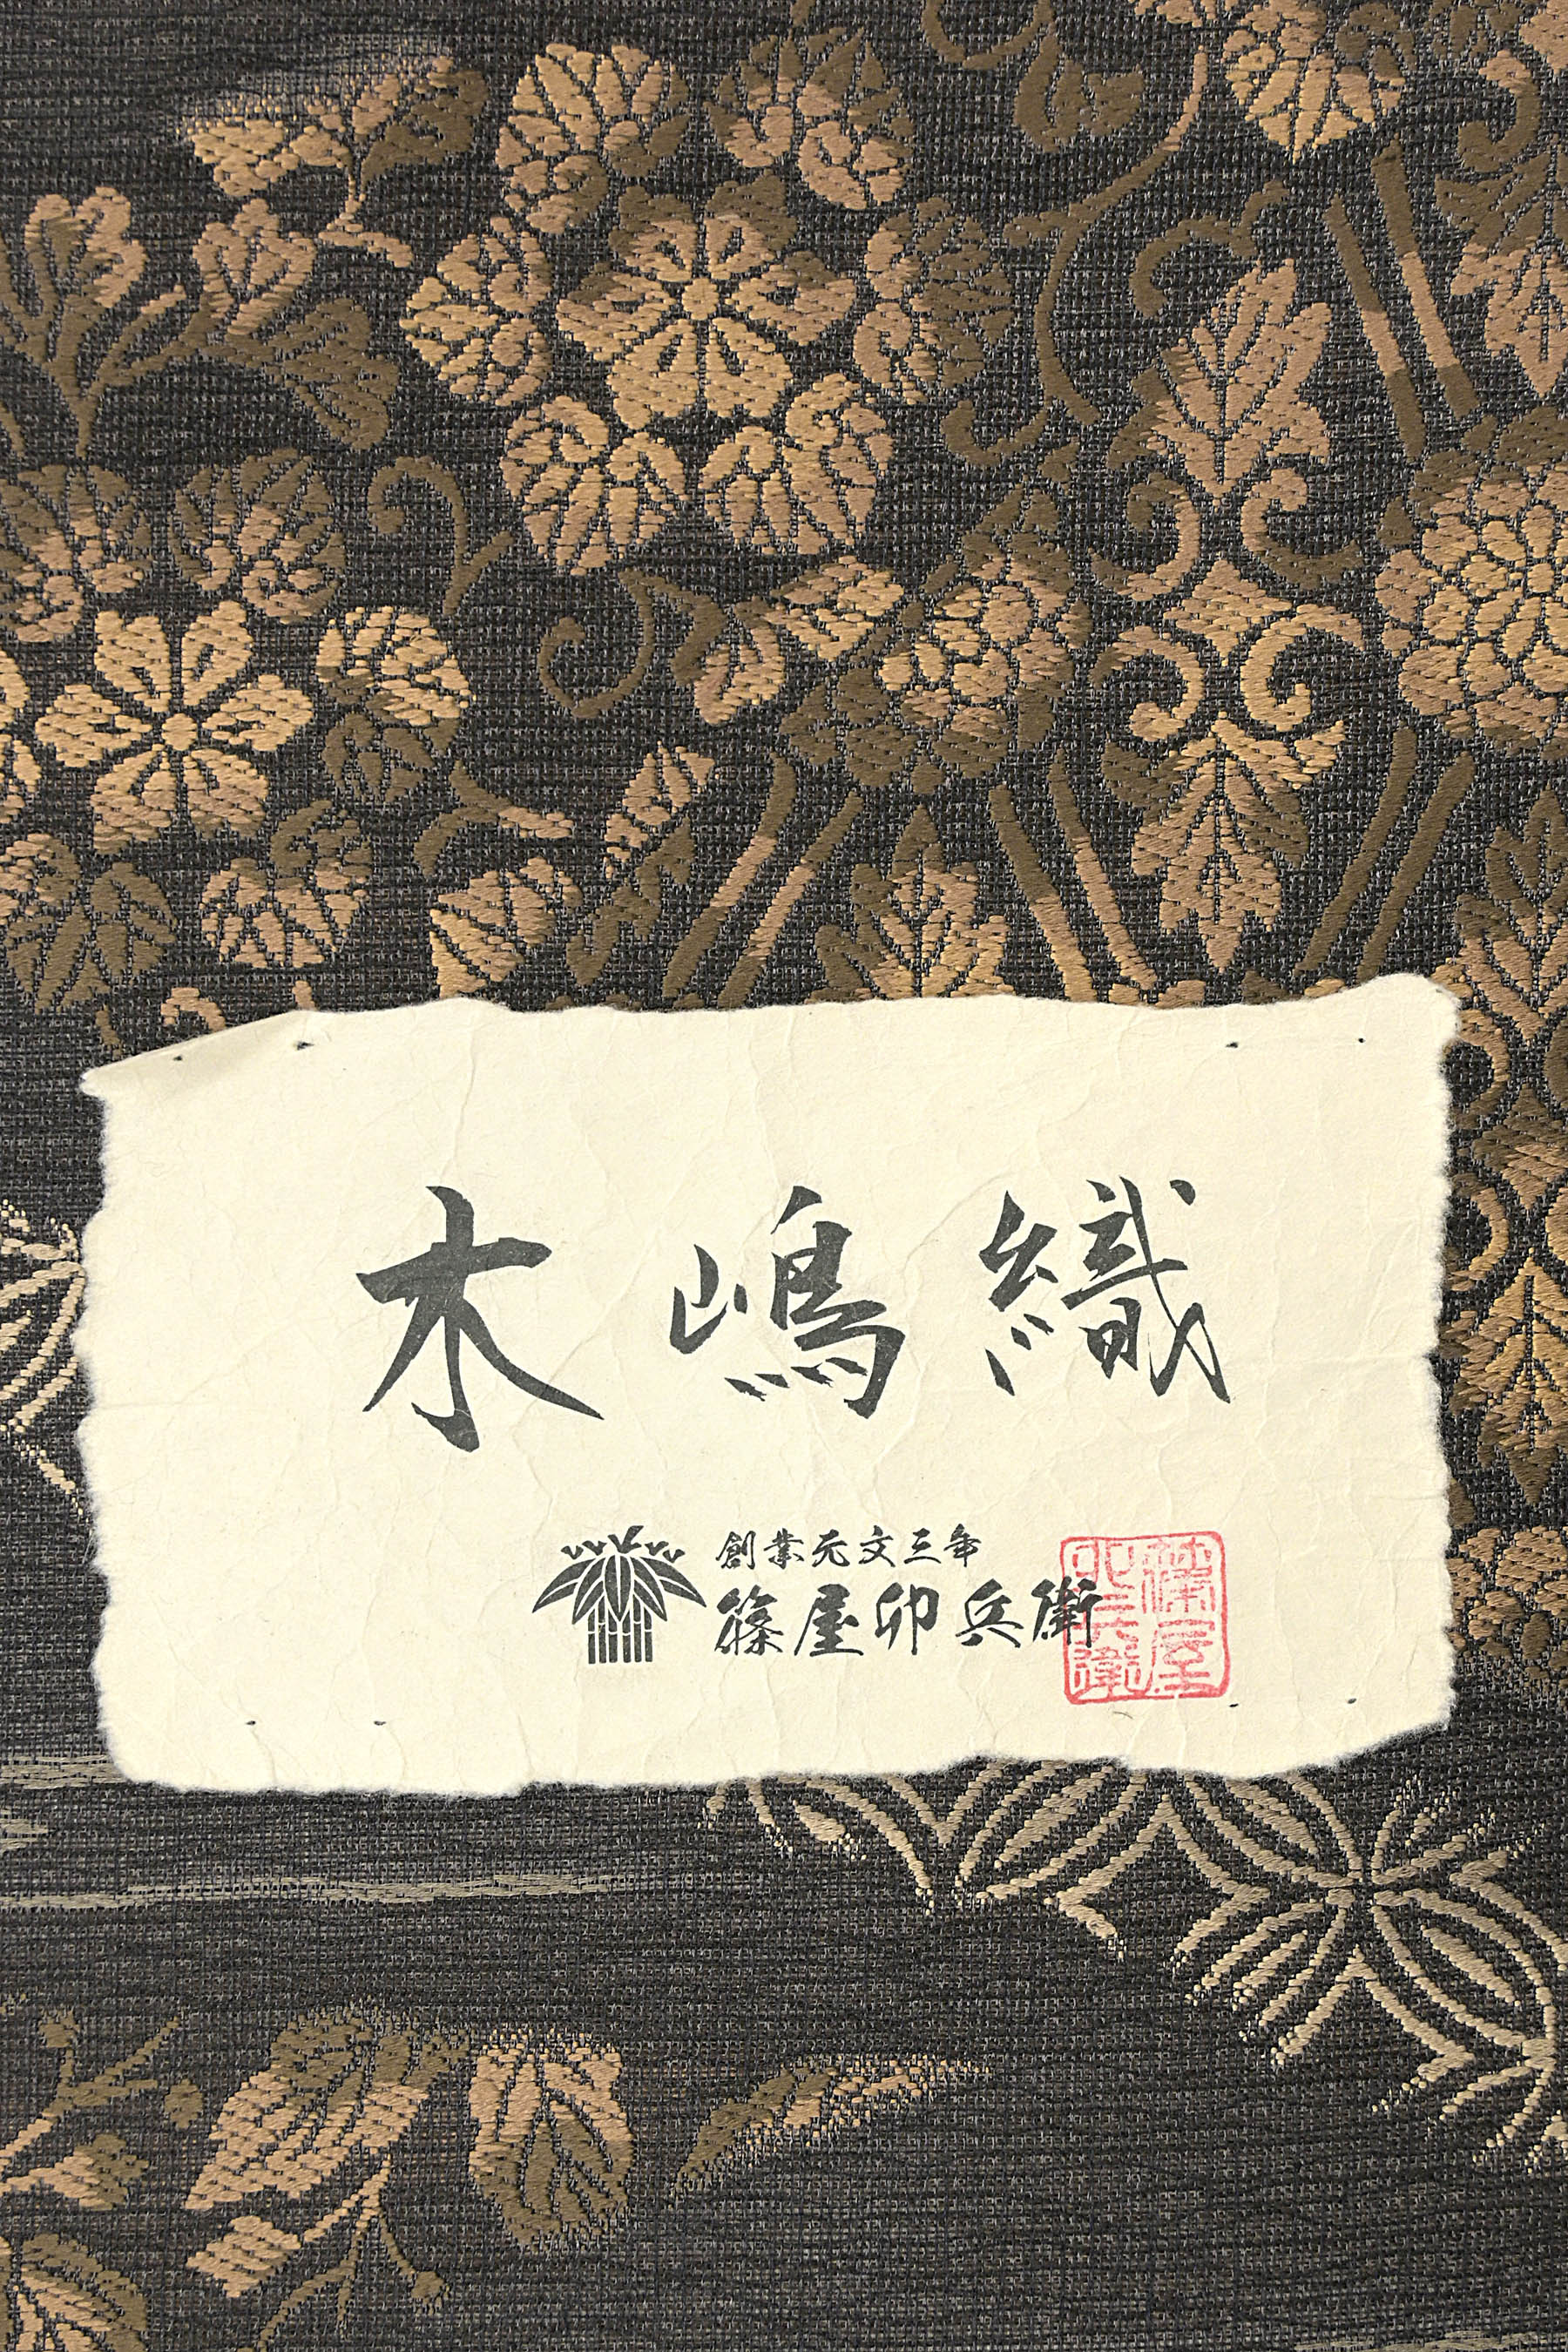 木嶋織
創業元文三年
篠屋卯兵衛
篠屋
卯兵衛